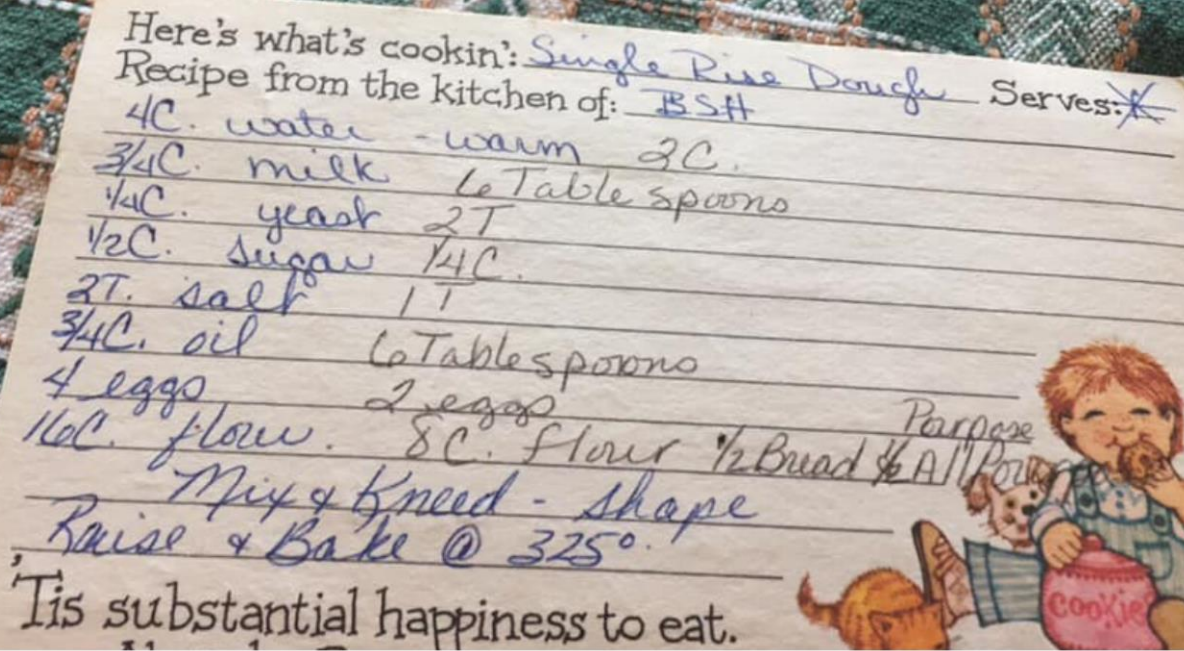 Here's what's cookin': Single Rise Dough Serves:
Recipe from the kitchen of: BSH
4C. water - warm 2C.
3/4C. milk 6 Tablespoons
1/4C. yeast 2T
1/2C. sugar 1/4C.
2T. salt 1T
3/4C. oil 6 Tablespoons
4 eggs 2 eggs
Parpose
16C. flour. 8C. flour 1/2 Bread 1/2 All
Mix & Kneed - shape
Raise & Bake @ 325°.
'Tis substantial happiness to eat.
Cookie